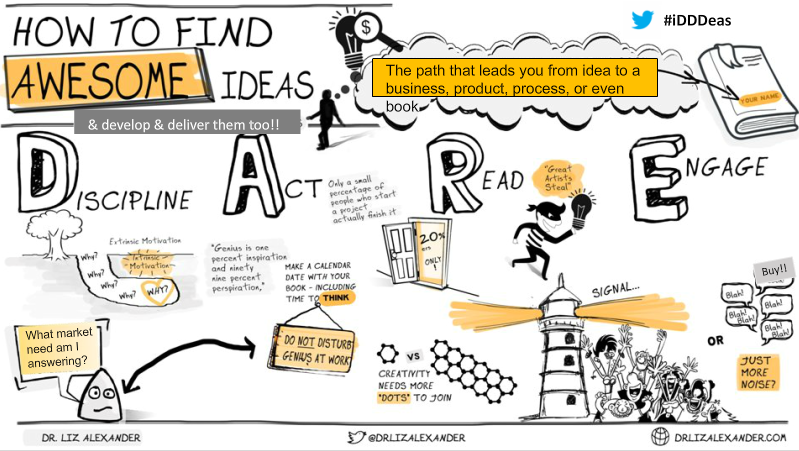 HOW TO FIND
AWESOME IDEAS
& develop & deliver them too!!
$
The path that leads you from idea to a
business, product, process, or even
book
#iDDDeas
YOUR NAME
DISCIPLINE
ACT
READ
ENGAGE
Extrinsic Motivation
Intrinsic
Motivation
Why?
Why?
Why?
Why?
WHY?
"Genius is one
percent inspiration
and ninety
nine percent
perspiration."
Only a small
percentage of
people who start
a project
actually finish it
MAKE A CALENDAR
DATE WITH YOUR
BOOK - INCLUDING
TIME TO THINK
DO NOT DISTURB
GENIUS AT WORK
What market
need am I
answering?
"Great
Artists
Steal"
ONLY!
VS
CREATIVITY
NEEDS MORE
"DOTS" TO JOIN
SIGNAL...
OR
Buy!!
Blah!
Blah!
Blah!
Blah!
Blah!
Blah!
Blah!
JUST
MORE
NOISE?
DR. LIZ ALEXANDER
@DRLIZALEXANDER
DRLIZALEXANDER.COM